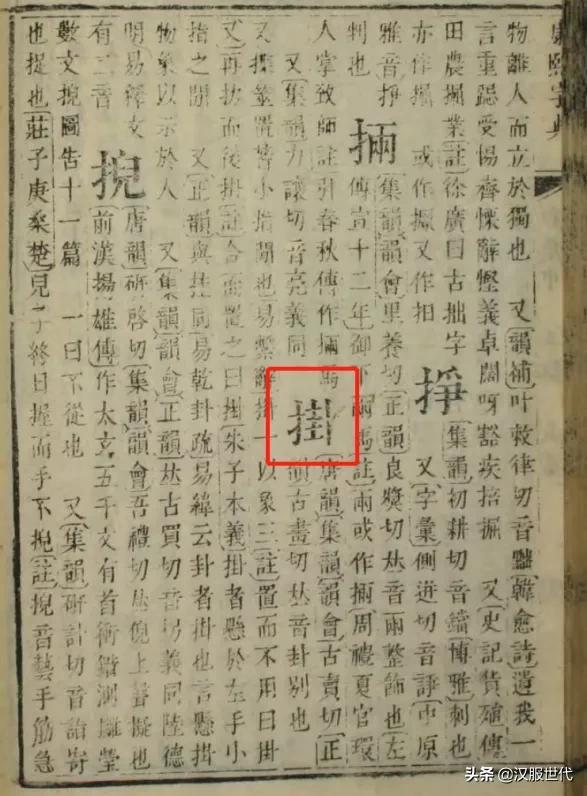 康熙字典
物離人而立於獨也 又韻補叶敕律切音黜韓愈詩遣我一
言重跽受惕齊慄辭慳義卓闊呀豁疾掊掘 又史記貨殖傳
田農掘業註徐廣曰古拙字
亦作搰 或作又作抇
掙 集韻初耕切音鐺博雅刺也
又字彙側迸切音諍中原
雅音掙
判也
掚 集韻韻會里養切正韻良獎切𠀤音兩整飾也左
傳宣十二年御下掚馬註兩或作掚周禮夏官環
人掌致師註引春秋傳作掚馬
又集韻力讓切音亮義同
掛 唐韻集韻韻會古賣切正
韻古畫切𠀤音卦別也
又揲蓍置蓍小指閒也易繫辭掛一以象三註置而不用曰掛
又再扐而後掛註合而置之曰掛朱子本義掛者懸於左手小
指之閒 又正韻與挂同易乾卦疏易緯云卦者掛也言懸掛
物象以示於人 又集韻韻會正韻𠀤古買切音義同陸德
明易釋文
有二音
掜 唐韻研啓切集韻韻會吾禮切𠀤倪上聲擬也
前漢揚雄傳作太玄五千文有首衝錯測攡瑩
數文掜圖告十一篇 一曰不從也 又集韻研計切音詣寄
也捉也莊子庚桑楚兒子終日握而手不掜註掜音藝手筋急
头条 @汉服世代